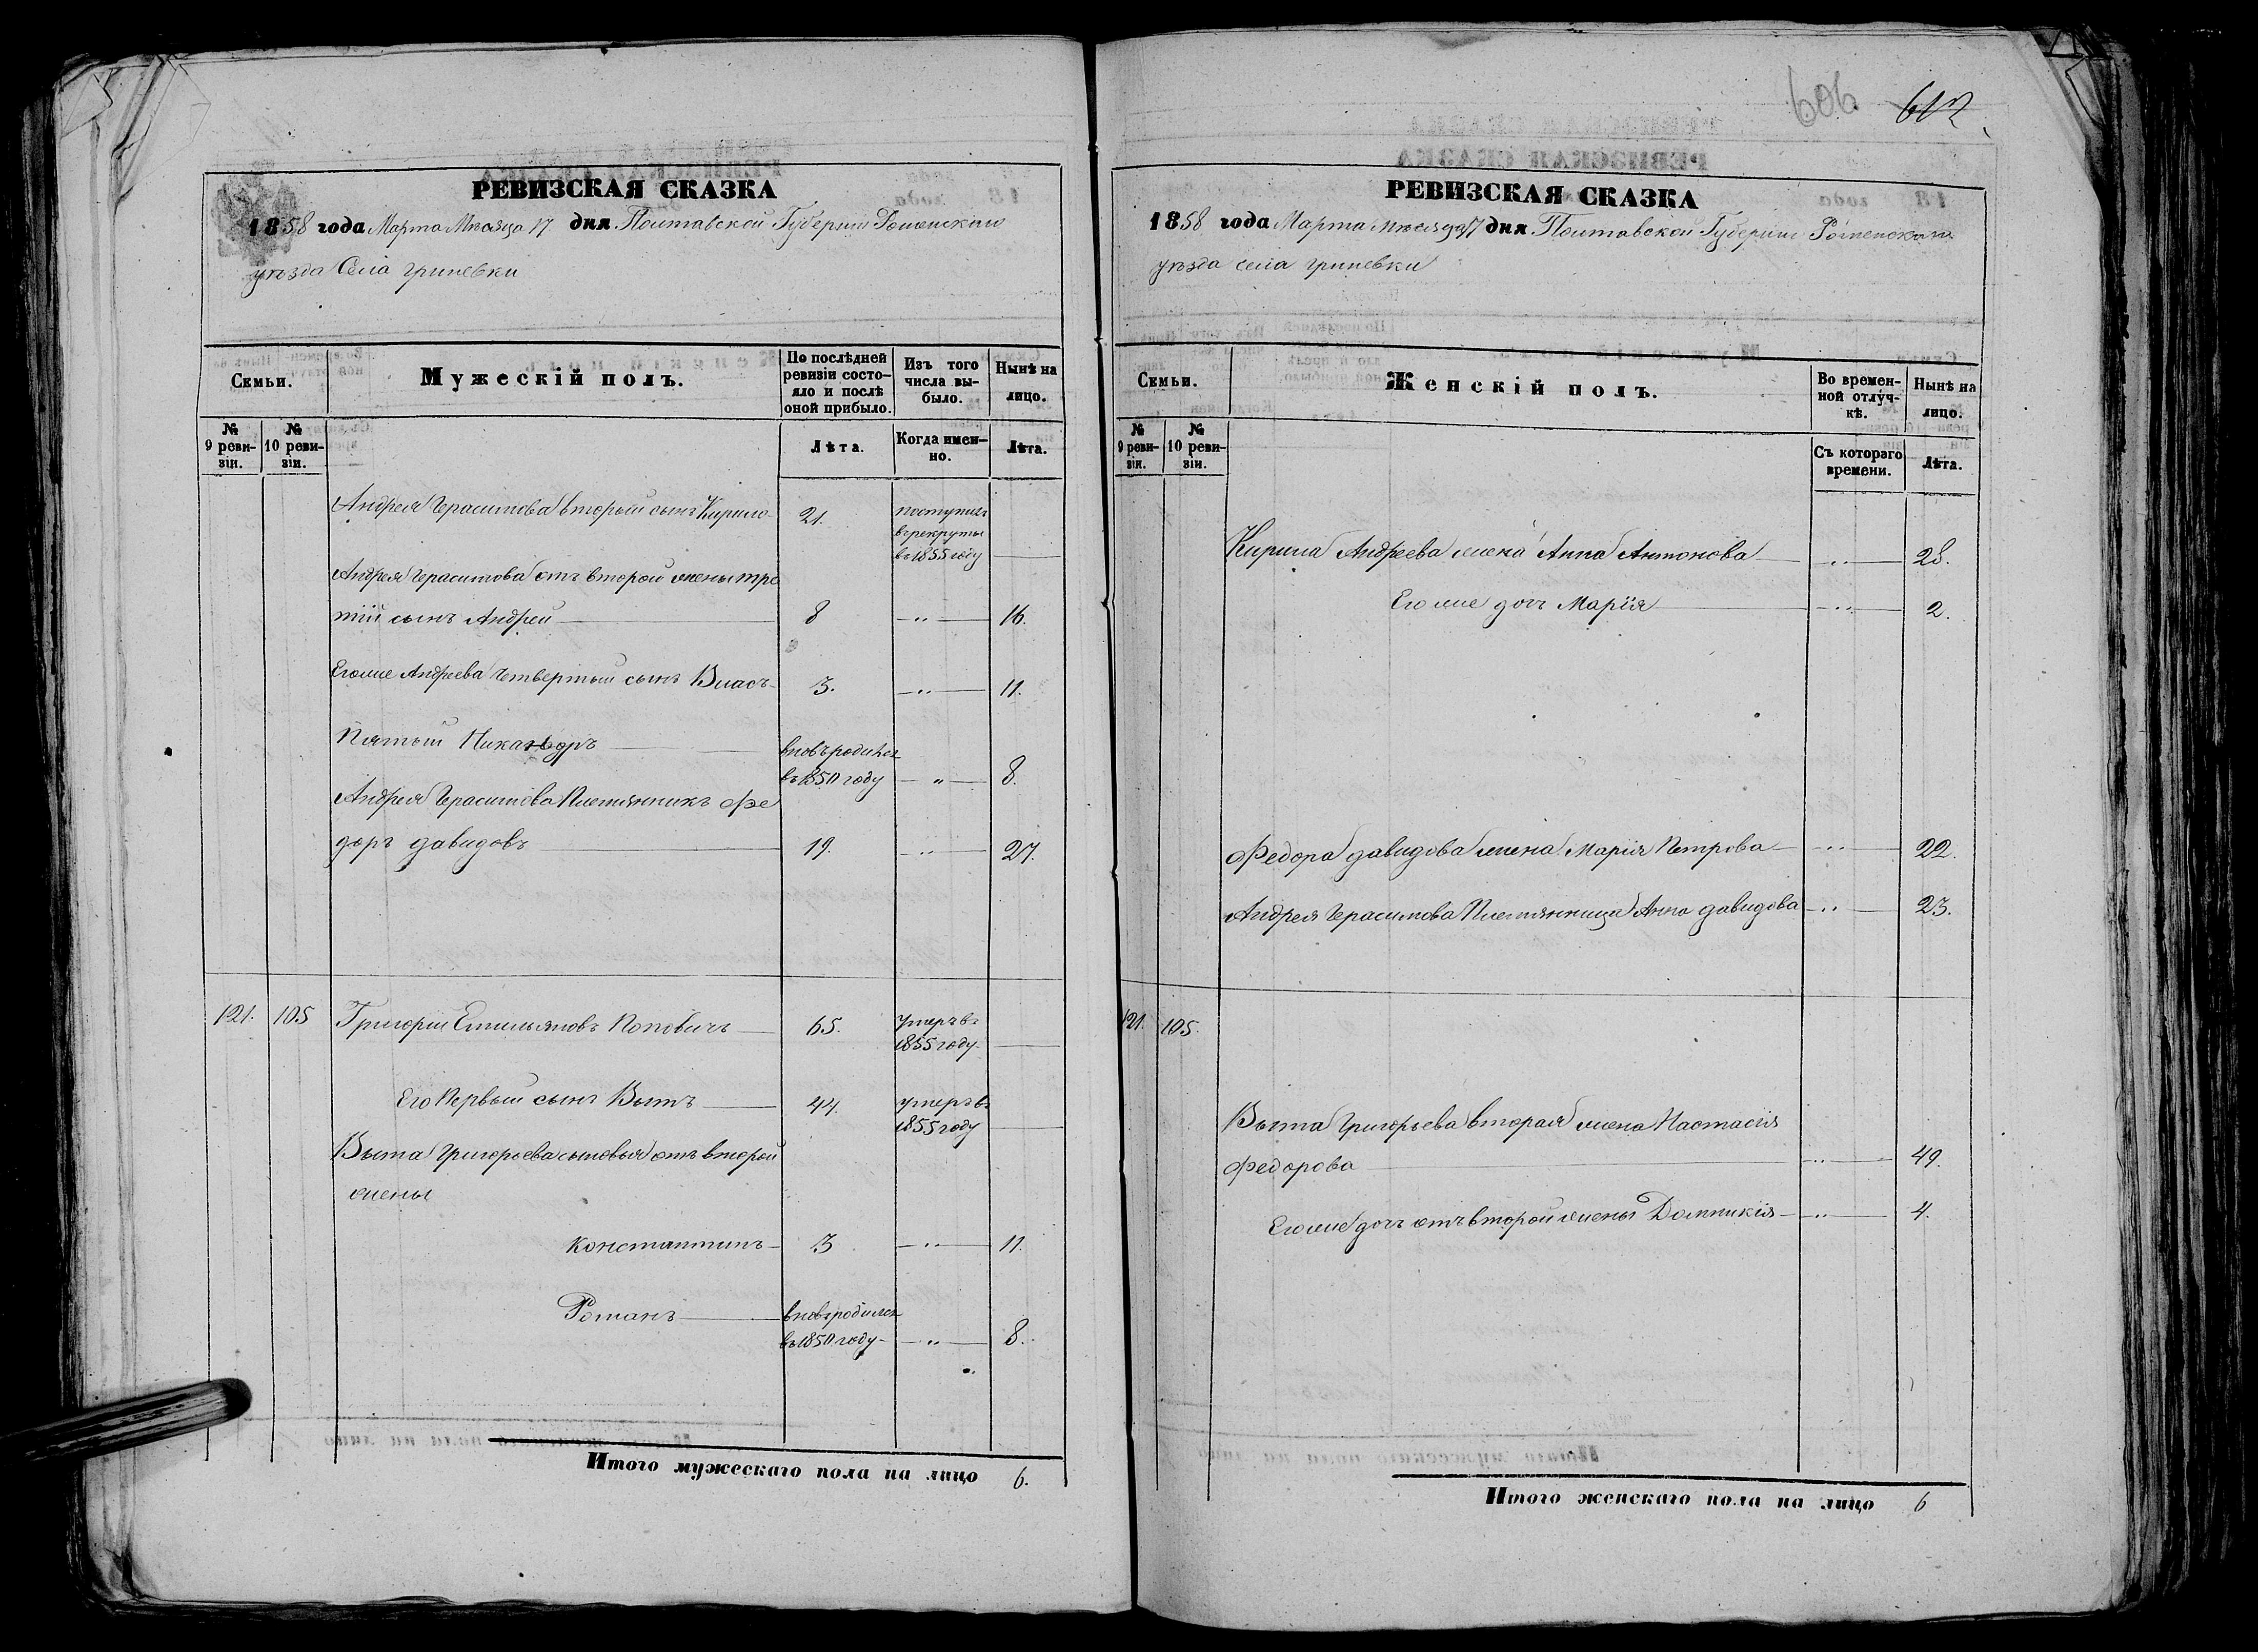 606 612
РЕВИЗСКАЯ СКАЗКА
1858 года Марта Мѣсяца 17 дня Полтавской Губерніи Роменскаго
уѣзда Села Гриневки
Семьи.
Мужескій полъ.
По послѣдней ревизіи состо-
яло и послѣ оной прибыло.
Изъ того числа вы-
было.
Нынѣ на лицо.
№ 9 реви-
зіи.
№ 10 реви-
зіи.
Лѣта.
Когда имен-
но.
Лѣта.
Андрея Герасимова второй сынъ Кирило 21. поступилъ
въ рекруты
въ 1855 году
Андрея Герасимова отъ второй жены тре
тій сынъ Андрей 8 — " — 16.
Его же Андреева четвертый сынъ Власъ 3. — " — 11.
Пятый Никаноръ вновь родился
въ 1850 году — " — 8.
Андрея Герасимова Племянникъ Фе
доръ Давидовъ 19. — " — 27.
121. 105 Григорій Емильяновъ Поповичъ 65. умеръ въ
1855 году
Его Первый сынъ Вытъ 44. умеръ въ
1855 году
Выта Григорьева сыновья отъ второй
жены
Константинъ 3 — " — 11.
Романъ вновь родился
въ 1850 году — " — 8.
Итого мужескаго пола на лицо 6.
РЕВИЗСКАЯ СКАЗКА
1858 года Марта Мѣсяца 17 дня Полтавской Губерніи Роменскаго
уѣзда села Гриневки
Семьи.
Женскій полъ.
Во времен-
ной отлуч-
кѣ.
Нынѣ на лицо.
№ 9 реви-
зіи.
№ 10 реви-
зіи.
Съ котораго времени.
Лѣта.
Кирила Андреева жена Анна Антонова — " — 28.
Его же дочь Марія — " — 2.
Федора Давидова жена Марія Петрова — " — 22.
Андрея Герасимова Племянница Анна Давидова — " — 23.
121. 105.
Выта Григорьева вторая жена Настасія
Федорова — " — 49.
Его же дочь отъ второй жены Домникія — " — 4.
Итого женскаго пола на лицо 6